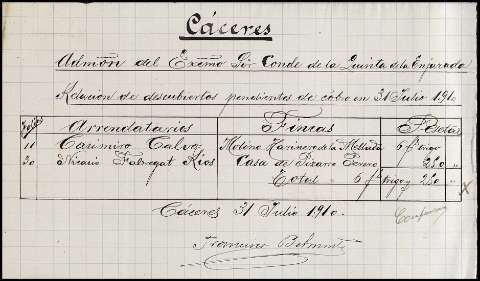 Cáceres
Admón del Exmo Sr Conde de la Quinta de la Enjarada
Relacion de descubiertos pendientes de cobro en 31 Julio 1910
Folios Arrendatarios Fincas Pesetas
11 Casimiro Calvo Molino Harinero de la Mellada 6 fs trigo
20 Nicasio Fabregat Rios Casa de Pizarro 280 "
Total 6 fs trigo y 280 " X
Cáceres 31 Julio 1910.
Francisco Belmonte